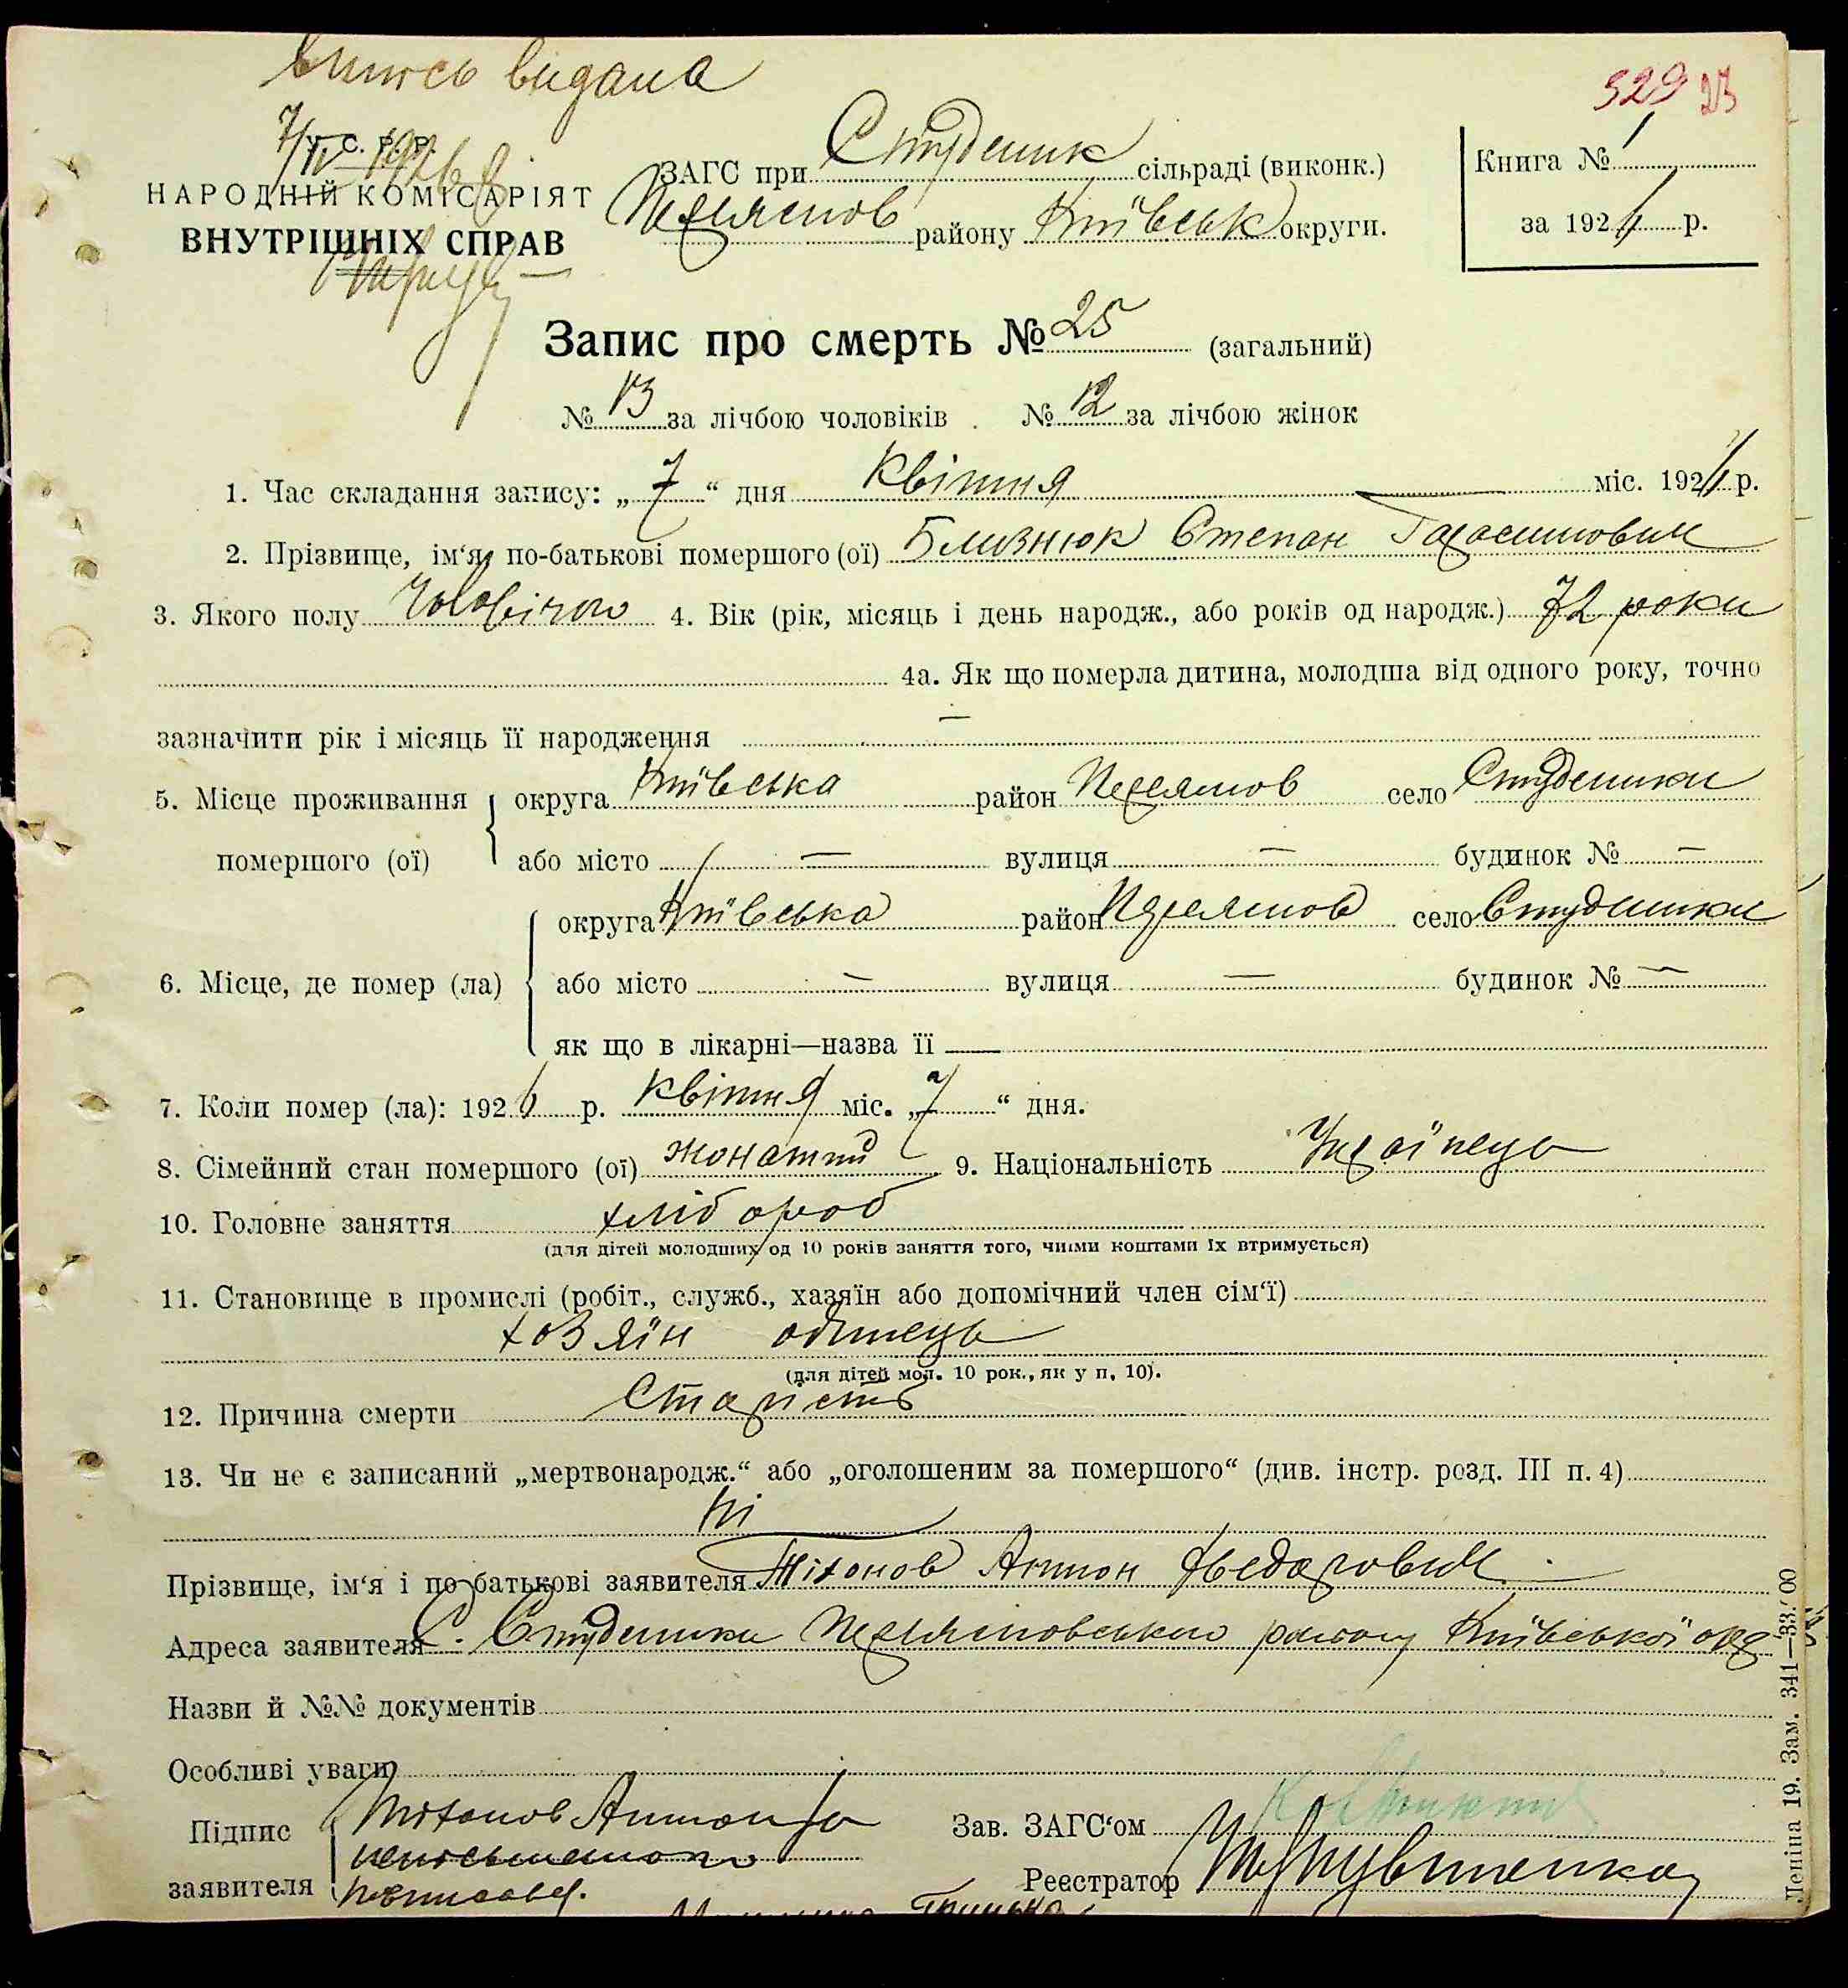 Випись видана
329 23
7/IV 1926 р
У. С. Р. Р.
НАРОДНІЙ КОМІСАРІЯТ
ВНУТРІШНІХ СПРАВ
ЗАГС при Студеник сільраді (виконк.)
Переяслов району Київськ округи.
Книга № 1
за 1926 р.
Запис про смерть № 25 (загальний)
№ 13 за лічбою чоловіків . № 12 за лічбою жінок
1. Час складання запису: „ 7 “ дня Квітня міс. 1926 р.
2. Прізвище, ім‘я, по-батькові помершого (ої) Близнюк Степан Гарасимович
3. Якого полу Чоловічого 4. Вік (рік, місяць і день народж., або років од народж.) 72 роки
4а. Як що померла дитина, молодша від одного року, точно
зазначити рік і місяць її народження —
5. Місце проживання помершого (ої) округа Київська район Переяслов село Студеники
або місто — вулиця — будинок № —
6. Місце, де помер (ла) округа Київська район Переяслов село Студеники
або місто — вулиця — будинок № —
як що в лікарні—назва її —
7. Коли помер (ла): 1926 р. Квітня міс. „ 7 “ дня.
8. Сімейний стан помершого (ої) жонатий 9. Національність Українець
10. Головне заняття хлібороб
(для дітей молодших од 10 років заняття того, чиїми коштами їх втримується)
11. Становище в промислі (робіт., служб., хазяїн або допомічний член сім‘ї)
хозяїн одинець
(для дітей мол. 10 рок., як у п. 10).
12. Причина смерти Старість
13. Чи не є записаний „мертвонародж.“ або „оголошеним за помершого“ (див. інстр. розд. III п. 4)
Ні
Прізвище, ім‘я і по-батькові заявителя Тіхонов Антон Федорович
Адреса заявителя С. Студеники Переяслівського району Київської окр
Назви й №№ документів
Особливі уваги
Підпис заявителя Тіхонов Антон
Зав. ЗАГС‘ом
Реєстратор
Леніна 19. Зам. 341—33.000